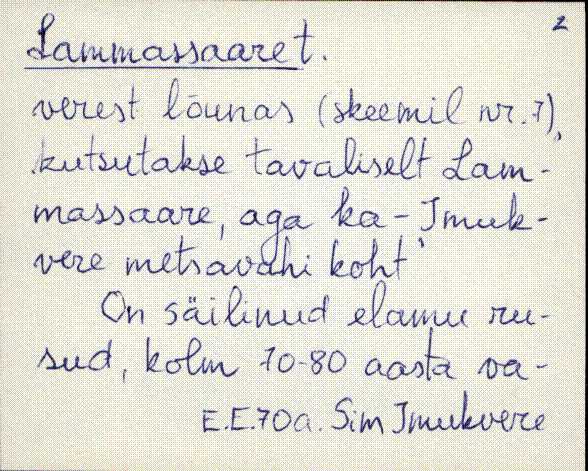 2
Lammassaaret.
verest lõunas (skeemil nr. 7),
kutsutakse tavaliselt Lam-
massaare, aga ka - Imuk-
vere metsavahi koht
On säilinud elamu ru-
sud, kolm 70-80 aasta va-
E.E. 70a. Sim Imukvere